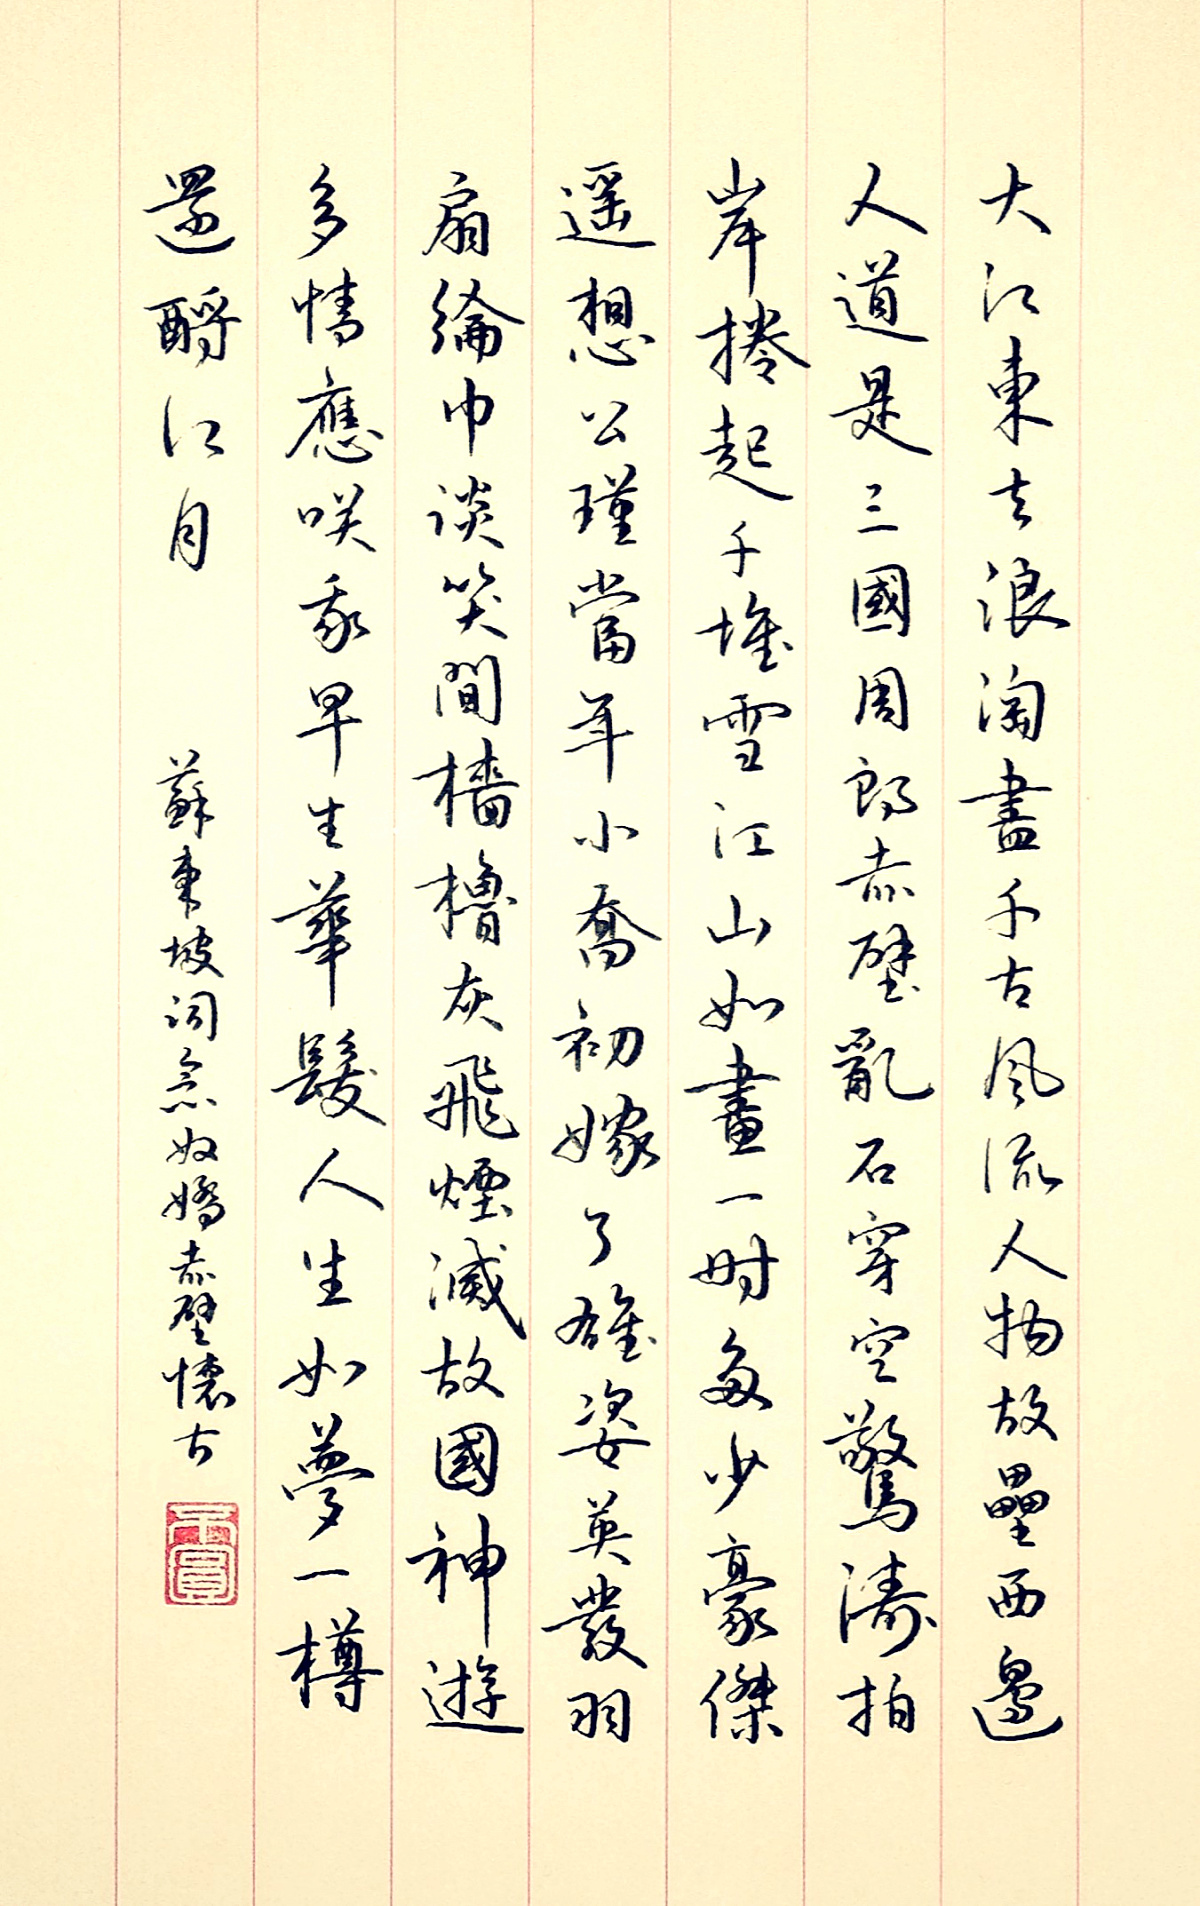 大江東去浪淘盡千古風流人物故壘西邊
人道是三國周郎赤壁亂石穿空驚濤拍
岸捲起千堆雪江山如畫一時多少豪傑
遥想公瑾當年小喬初嫁了雄姿英發羽
扇綸巾談笑間檣櫓灰飛煙滅故國神遊
多情應咲我早生華髮人生如夢一樽
還酹江月
蘇東坡词念奴嬌赤壁懷古